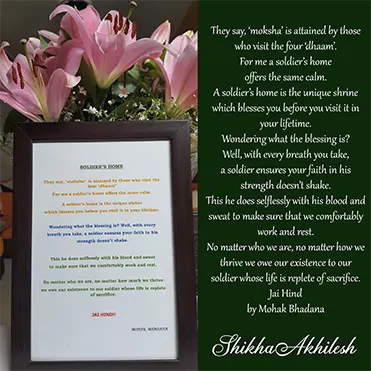 SOLDIER'S HOME
They say, 'moksha' is attained by those who visit the
four 'dhaam'
For me a soldier's home offers the same calm.
A soldier's home is the unique shrine
which blesses you before you visit it in your lifetime.
Wondering what the blessing is? Well, with every
breath you take, a soldier ensures your faith in his
strength doesn't shake.
This he does selflessly with his blood and sweat
to make sure that we comfortably work and rest.
No matter who we are, no matter how much we thrive
we owe our existence to our soldier whose life is replete
of sacrifice.
JAI HIND!!
They say, 'moksha' is attained by those
who visit the four 'dhaam'.
For me a soldier's home
offers the same calm.
A soldier's home is the unique shrine
which blesses you before you visit it in
your lifetime.
Wondering what the blessing is?
Well, with every breath you take,
a soldier ensures your faith in his
strength doesn't shake.
This he does selflessly with his blood and
sweat to make sure that we comfortably
work and rest.
No matter who we are, no matter how we
thrive we owe our existence to our
soldier whose life is replete of sacrifice.
Jai Hind
by Mohak Bhadana
Shikha Akhilesh